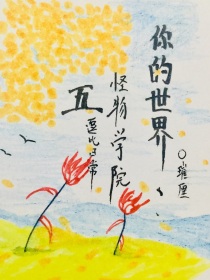 你的世界
○璀厘
怪物学院
五
逗比日常